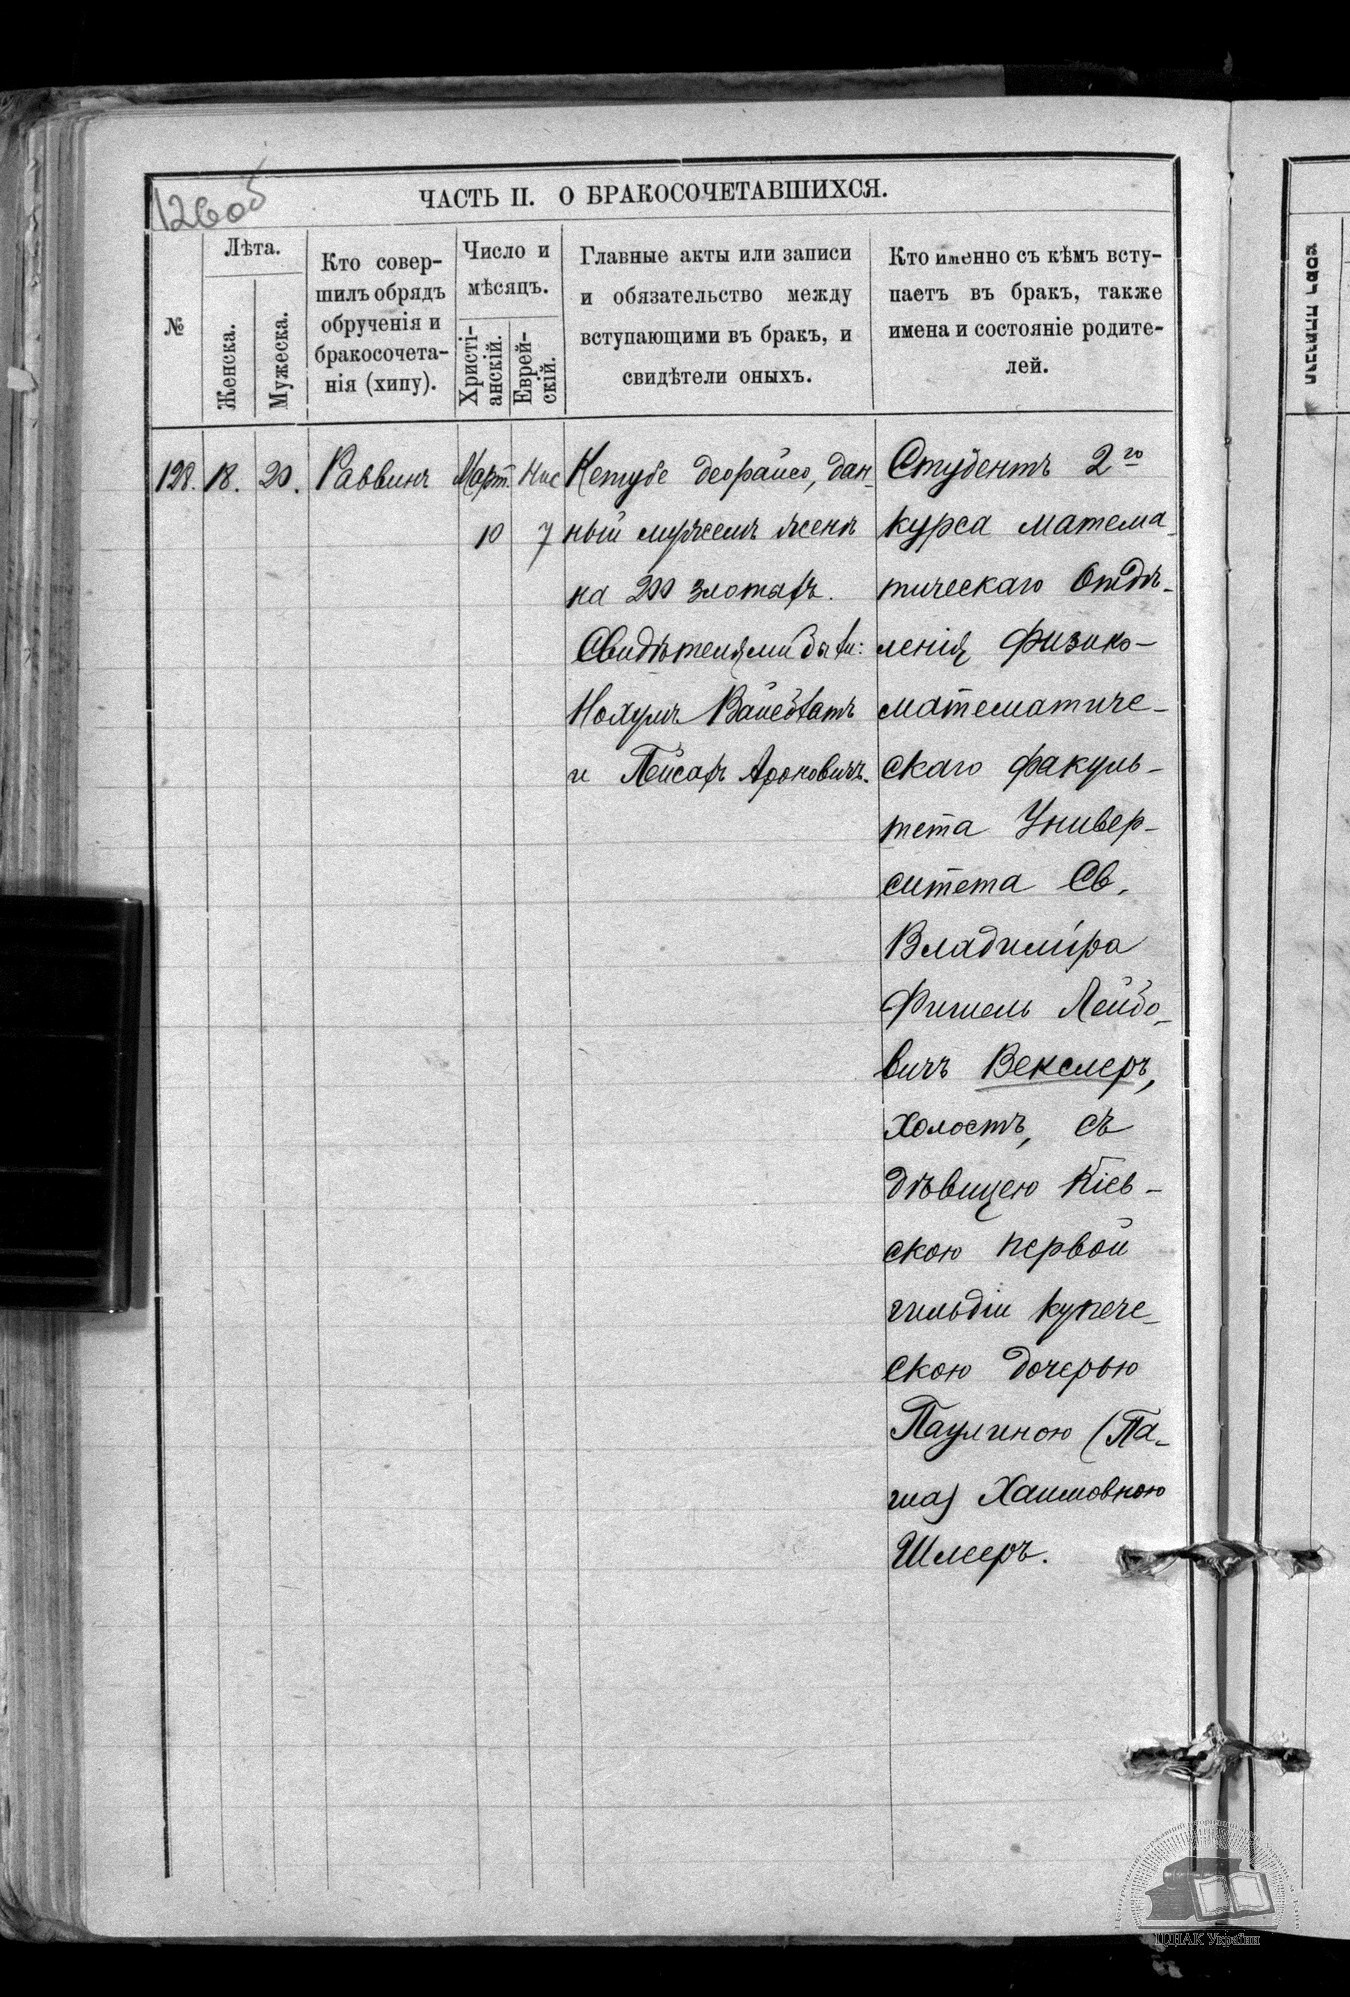 126об
ЧАСТЬ II. О БРАКОСОЧЕТАВШИХСЯ.
№
Лѣта.
Женска.
Мужеска.
Кто совер-
шилъ обрядъ
обрученія и
бракосочета-
нія (хипу).
Число и
мѣсяцъ.
Христі-
анскій.
Еврей-
скій.
Главные акты или записи
и обязательство между
вступающими въ бракъ, и
свидѣтели оныхъ.
Кто именно съ кѣмъ всту-
паетъ въ бракъ, также
имена и состояніе родите-
лей.
128. 18. 20. Раввинъ Март. Нис
10 7
Кетубе деорайсо, дан-
ный мужемъ женѣ
на 200 злотыхъ.
Свидѣтелями были:
Нохумъ Вайсблатъ
и Пейсахъ Ароновичъ.
Студентъ 2го
курса матема-
тическаго Отдѣ-
ленія Физико-
математиче-
скаго факуль-
тета Универ-
ситета Св.
Владиміра
Фишель Лейбо-
вичъ Векслеръ,
холостъ, съ
дѣвицею Кіев-
скою первой
гильдіи купече-
скою дочерью
Паулиною (Па-
ша) Хаимовною
Шлееръ.
ЦДІАК України